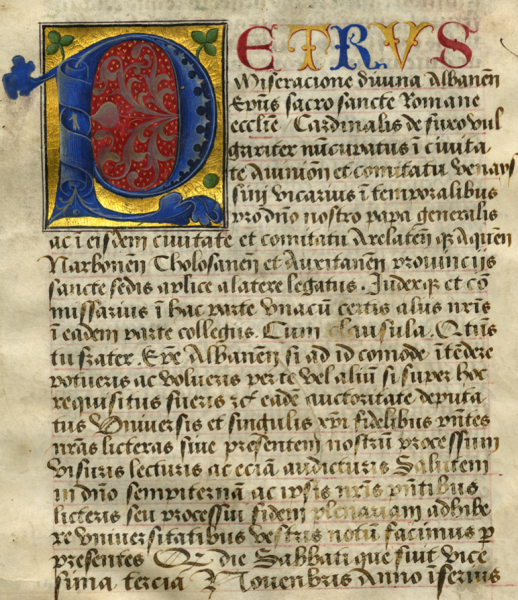 PETRUS
Miseracione divina Albanen̄
Ep̄us sacro sancte Romane
ecclīe Cardinalis de fuxo vul
gariter nūcupatus ī civita
te Avinion̄ et comitatu venays
sini vicarius ī temporalibus
pro dn̄o nostro papa generalis
ac ī eisdem civitate et comitatu Arelaten̄ q̄ Aquen̄
Narbonen̄ Tholosanen̄ et Auxitanen̄ provinciis
sancte sedis aplice a latere legatus. Judexq̄ et cō
missarius ī hac parte unacū certis aliis nr̄is
ī eadem parte collegis. Cum clausula. Q̄tinus
tu frater. Ep̄e Albanen̄ si ad id comode ītēdere
potueris ac volueris per te vel aliū si super hoc
requisitus fueris zc̄ eadē auctoritate deputa
tus Universis et singulis xp̄i fidelibus pn̄tes
nr̄as licteras sive presentem nostrū processum
visuris lecturis ac eciā audicturis Salutem
in dn̄o sempiternā ac ipsis nr̄is pn̄tibus
licteris seu processui fidem plenariam adhibe
re Universitatibus vestris notū facimus p
presentes Q̄ die Sabbati que fuit vice
sima tercia Novenbris Anno īferius